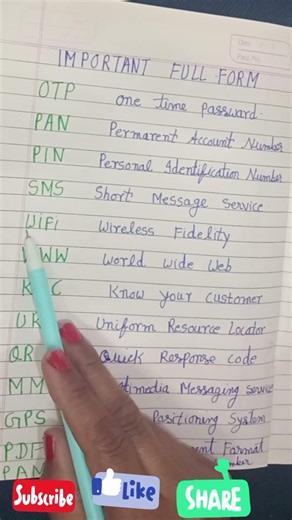 IMPORTANT FULL FORM
OTP one time password
PAN Permanent Account Number
PIN Personal Identification Number
SMS Short Message Service
WiFi Wireless Fidelity
WW World Wide Web
K C Know your customer
UR Uniform Resource Locator
QR Quick Response code
MM timedia Messaging Service
GPS Positioning System
PDF ent Format
PAN mber
Subscribe Like SHARE